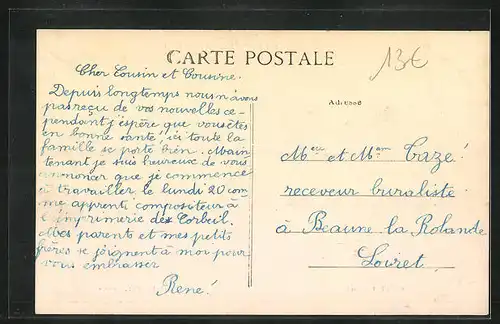 CARTE POSTALE
13€
Cher Cousin et Cousine.
Depuis longtemps nous n'avons
pas reçu de vos nouvelles ce-
pendant j'espère que vous êtes
en bonne santé, ici toute la
famille se porte bien. Main
tenant je suis heureux de vous
annoncer que je commence
à travailler le lundi 20 com
me apprenti compositeur à
l'imprimerie de Corbeil.
Mes parents et mes petits
frères se joignent à moi pour
vous embrasser
René!
Adresse
Meur et Mam Cazé!
receveur buraliste
à Beaune la Rolande
Loiret.